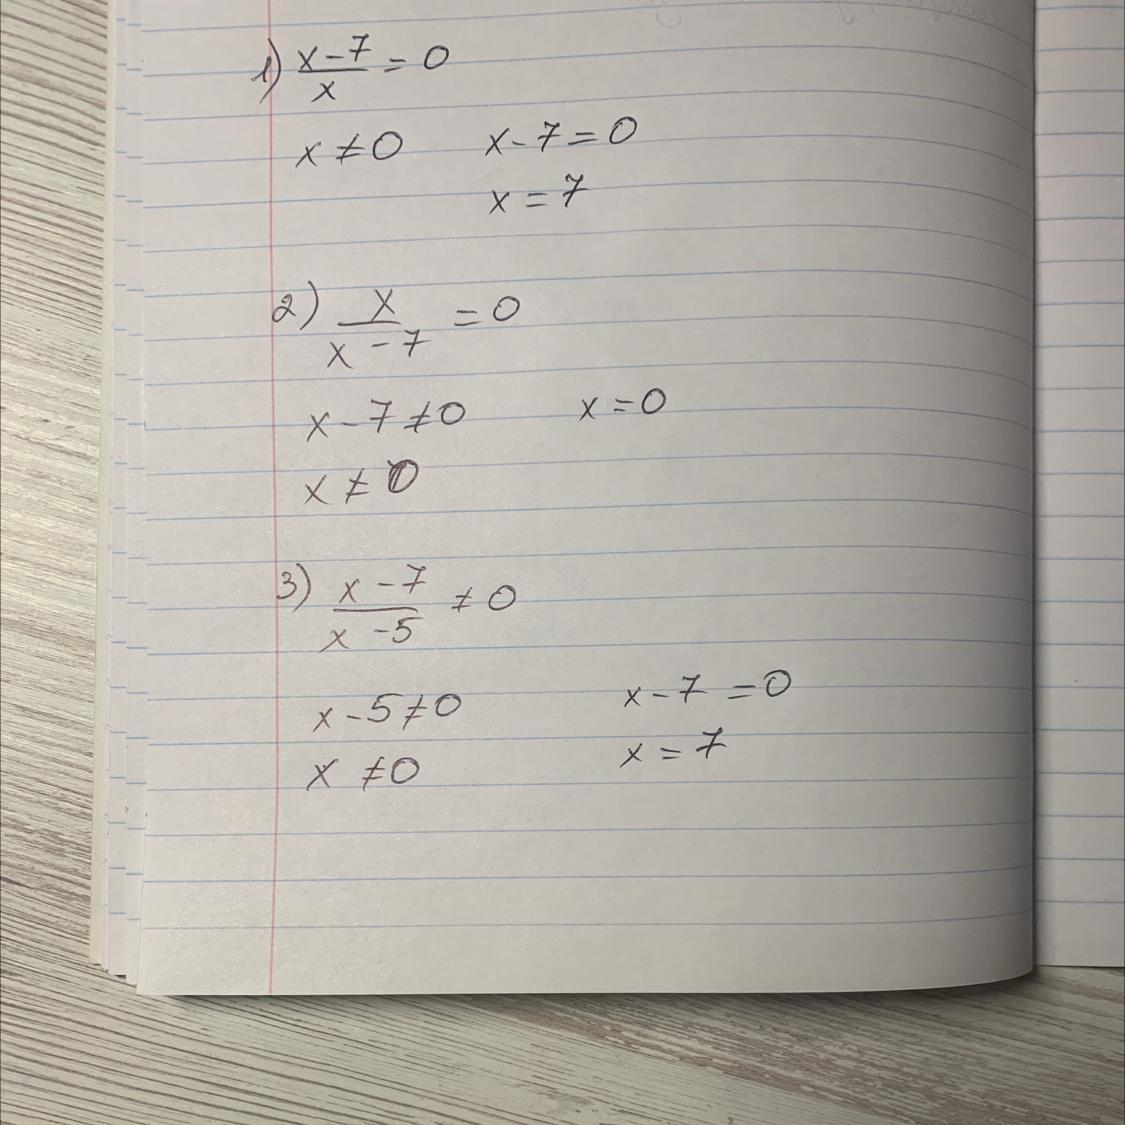 1) x-7/x = 0
x ≠ 0 x - 7 = 0
x = 7
2) x/x - 7 = 0
x - 7 ≠ 0 x = 0
x ≠ 0
3) x - 7/x - 5 ≠ 0
x - 5 ≠ 0 x - 7 = 0
x ≠ 0 x = 7